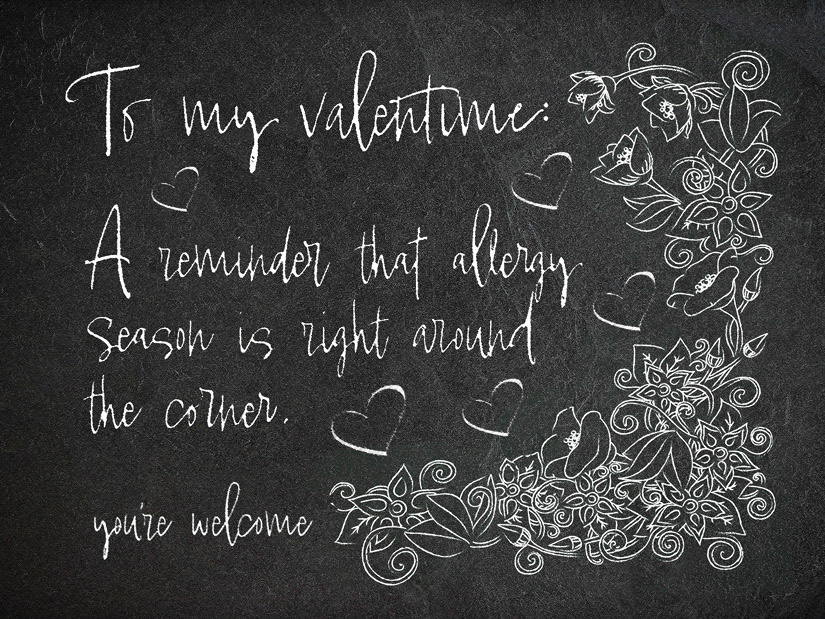 To my valentime:
A reminder that allergy
season is right around
the corner.
you're welcome